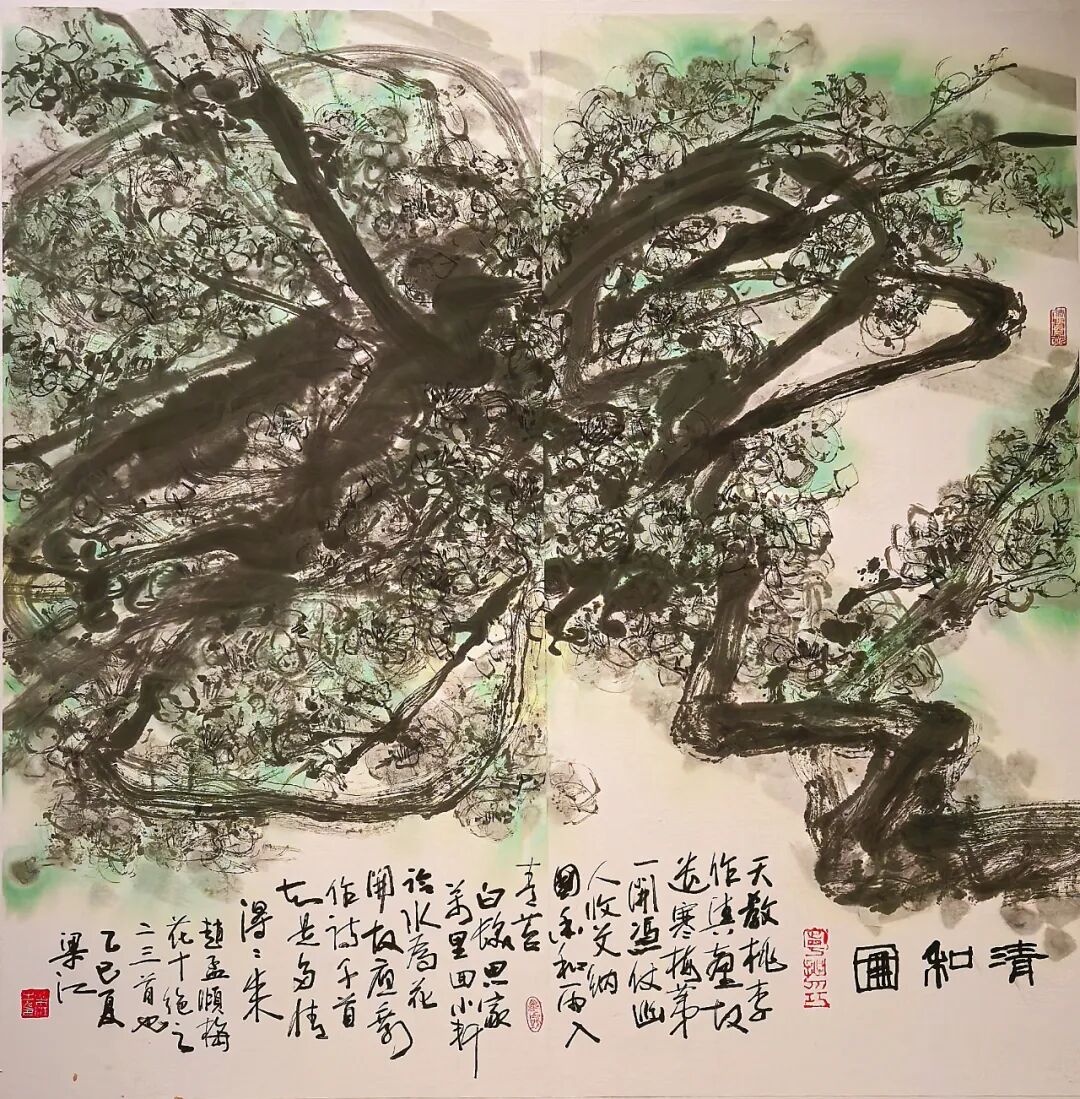 清和圖
天教桃李
作輿臺故
遣寒梅第
一開憑仗幽
人收艾納
國香和雨入
青苔
白髮思家
萬里回小軒
臨水為花
開故應剩
作詩千首
知是多情
得〻来
趙孟頫梅
花十絕之
二三首也
乙巳夏
梁江